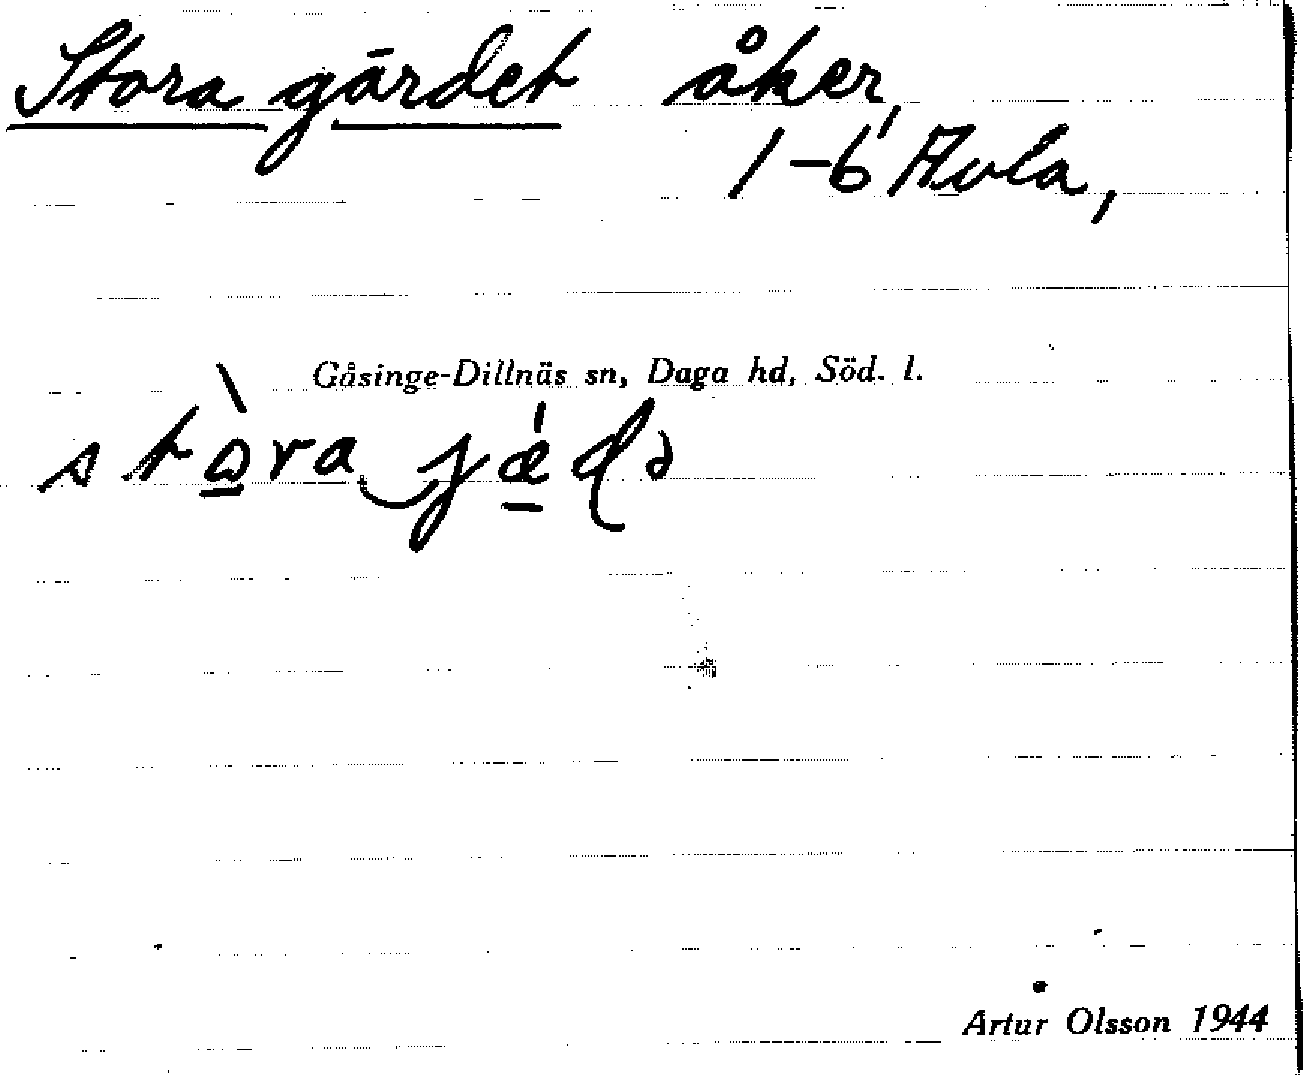 Stora gärdet åker,
1-6 Avla,
Gåsinge-Dillnäs sn, Daga hd, Söd. l.
Artur Olsson 1944